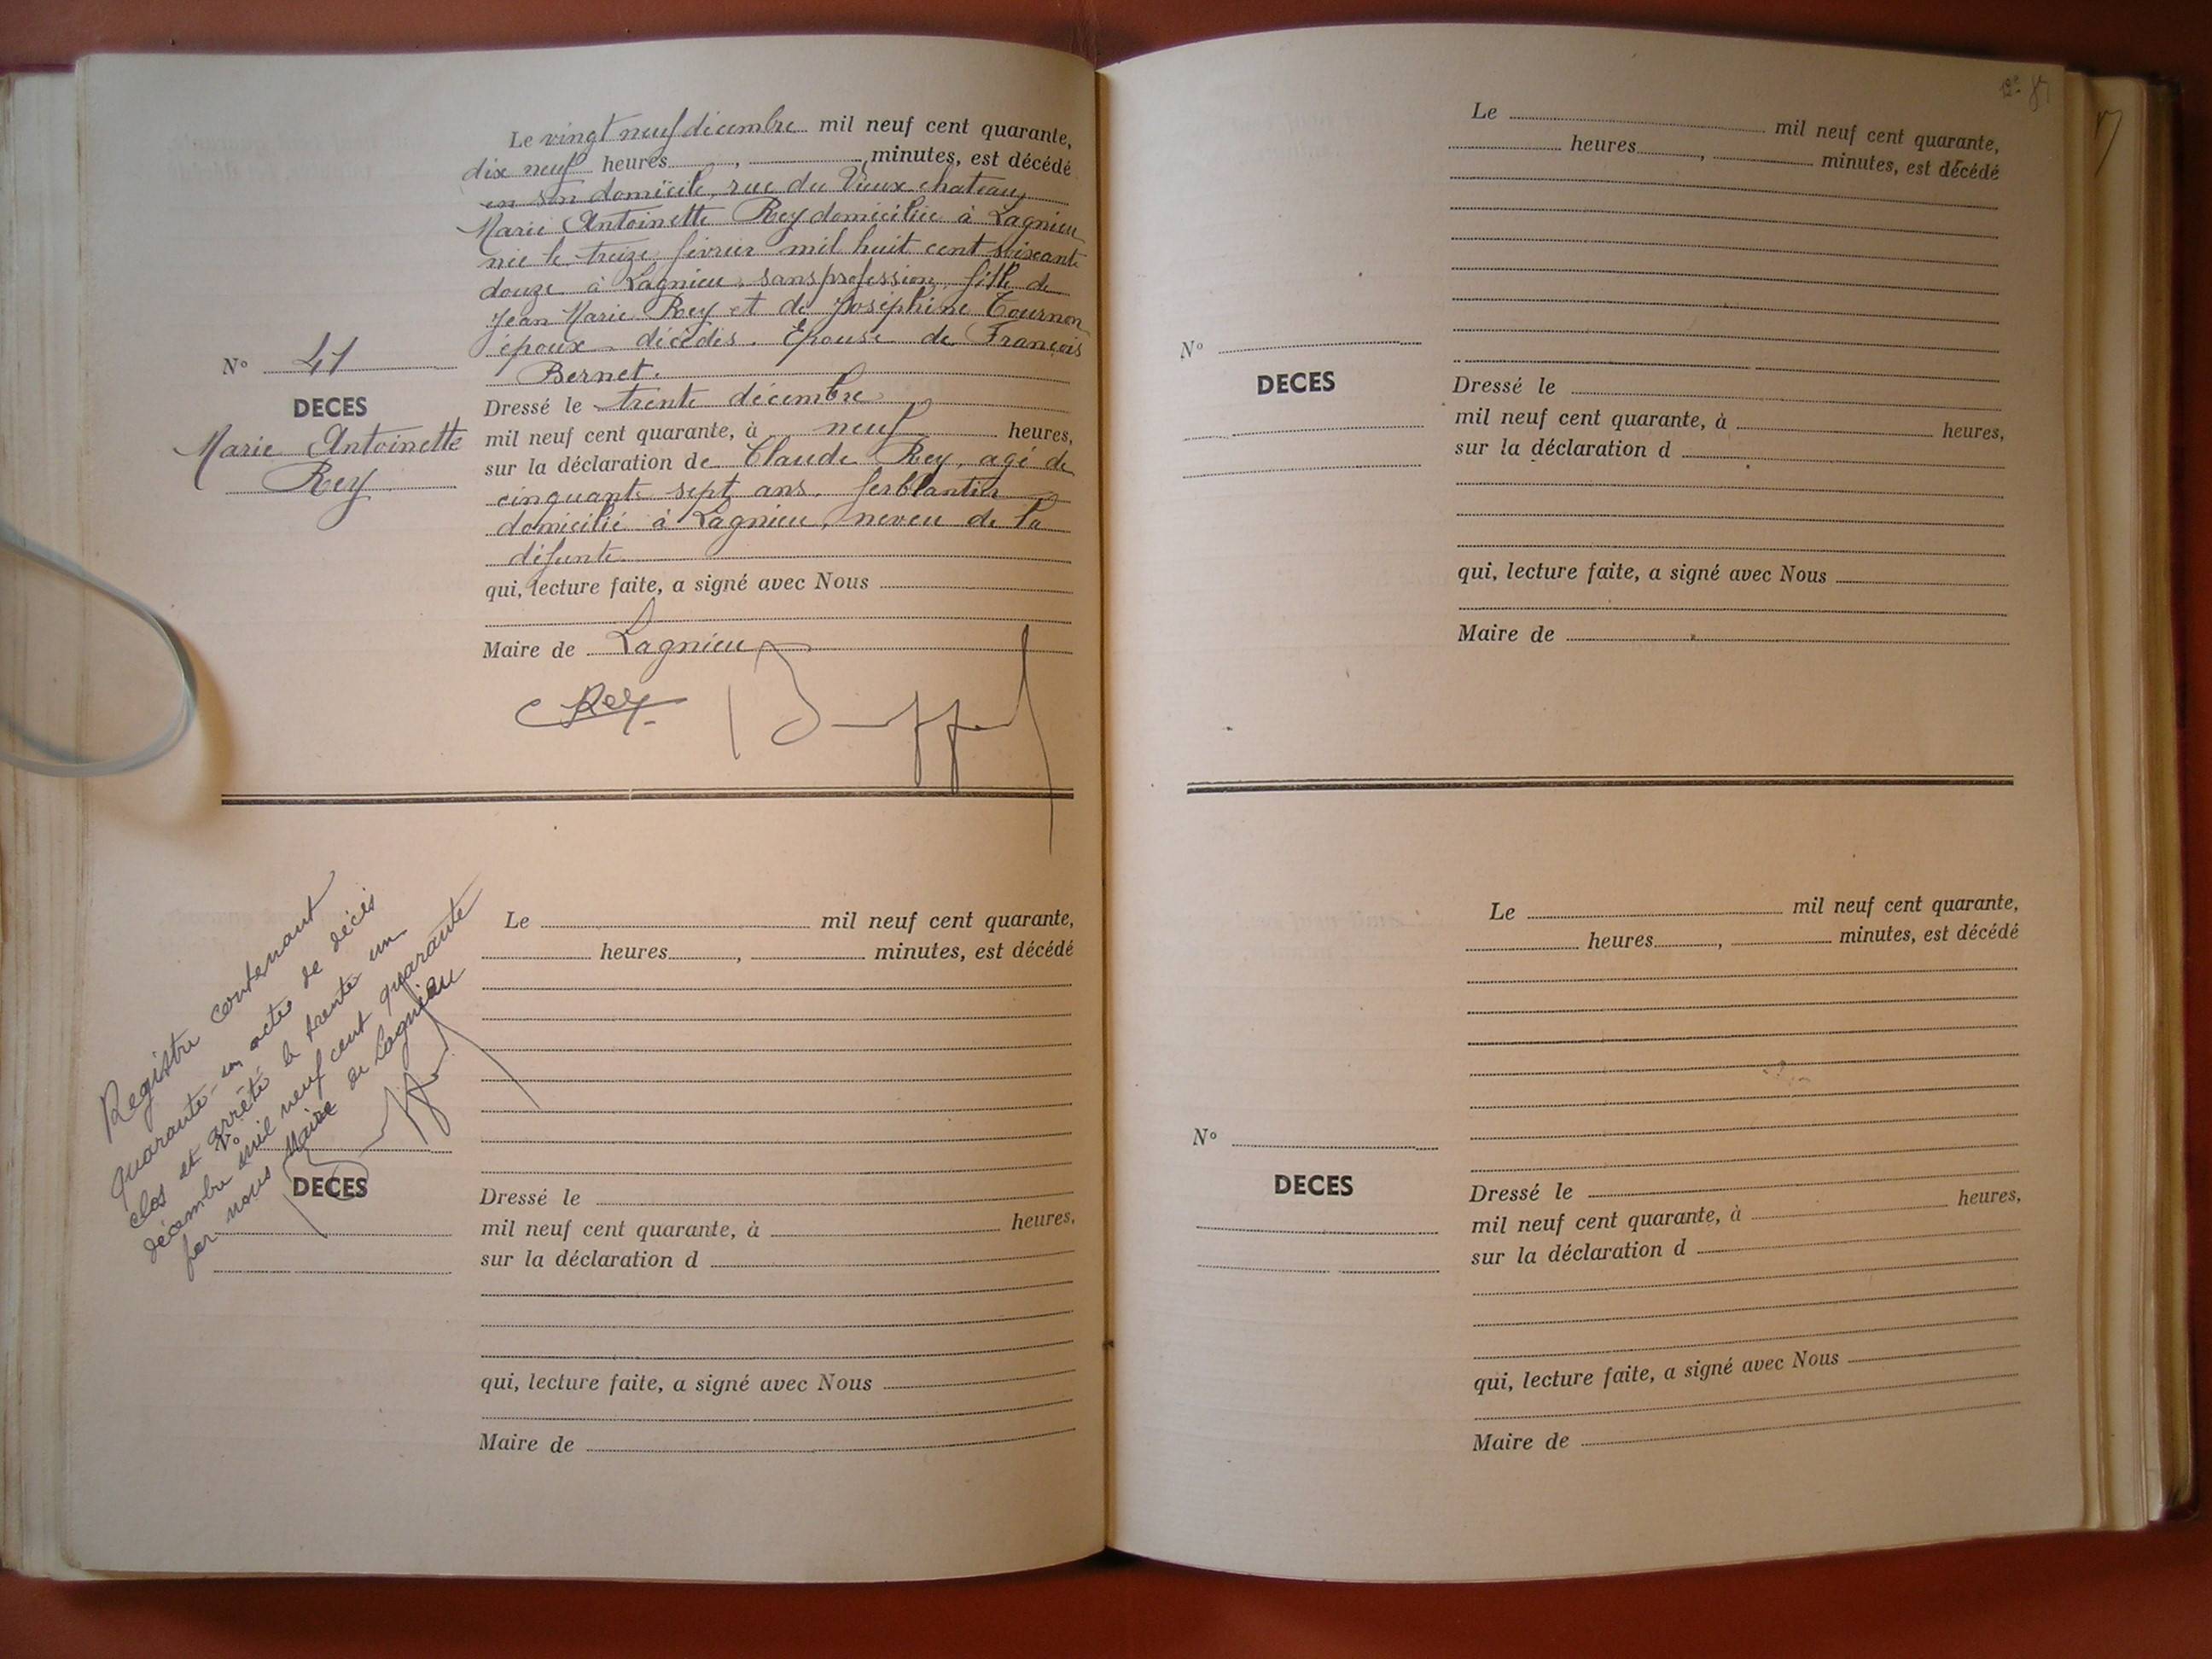 Le vingt neuf décembre mil neuf cent quarante,
dix neuf heures , minutes, est décédé
en son domicile, rue du Vieux chateau,
Marie Antoinette Rey domiciliée à Lagnieu
née le treize février mil huit cent soixante
douze à Lagnieu, sans profession, fille de
Jean Marie Rey et de Joséphine Tournon
époux décédés. Epouse de François
Bernet.
N° 41
DECES
Marie Antoinette
Rey
Dressé le trente décembre
mil neuf cent quarante, à neuf heures,
sur la déclaration de Claude Rey, agé de
cinquante sept ans, ferblantier
domicilié à Lagnieu, neveu de la
défunte
qui, lecture faite, a signé avec Nous
Maire de Lagnieu
C Rey
Registre contenant
quarante-un actes de décès
clos et arrêté le trente un
décembre mil neuf cent quarante
par nous Maire de Lagnieu
Le mil neuf cent quarante,
heures , minutes, est décédé
N°
DECES
Dressé le
mil neuf cent quarante, à heures,
sur la déclaration d
qui, lecture faite, a signé avec Nous
Maire de
Le mil neuf cent quarante,
heures , minutes, est décédé
N°
DECES
Dressé le
mil neuf cent quarante, à heures,
sur la déclaration d
qui, lecture faite, a signé avec Nous
Maire de
Le mil neuf cent quarante,
heures , minutes, est décédé
N°
DECES
Dressé le
mil neuf cent quarante, à heures,
sur la déclaration d
qui, lecture faite, a signé avec Nous
Maire de